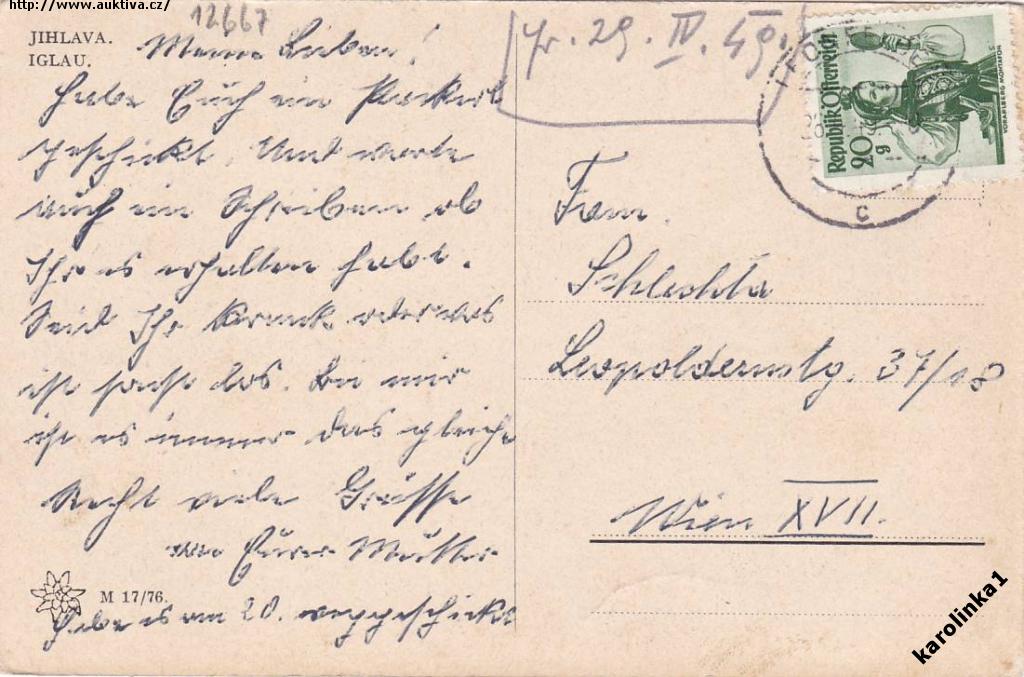 http://www.auktiva.cz/
12667
JIHLAVA.
IGLAU.
Meine Lieben!
Habe Euch ein Packerl
geschickt. Und warte
auch ein Schreiben ob
Ihr es erhalten habt.
Seid Ihr krank oder was
ist sonst los. Bei mir
ist es immer das gleiche
Recht viele Grüsse
von Eurer Mutter
M 17/76.
Habe es am 20. weggeschickt
29. IV. 49.
Republik Österreich
20 g
VORARLBERG MONTAFON
c
Fam.
Schlechta
37/18
Wien XVII.
karolinka1